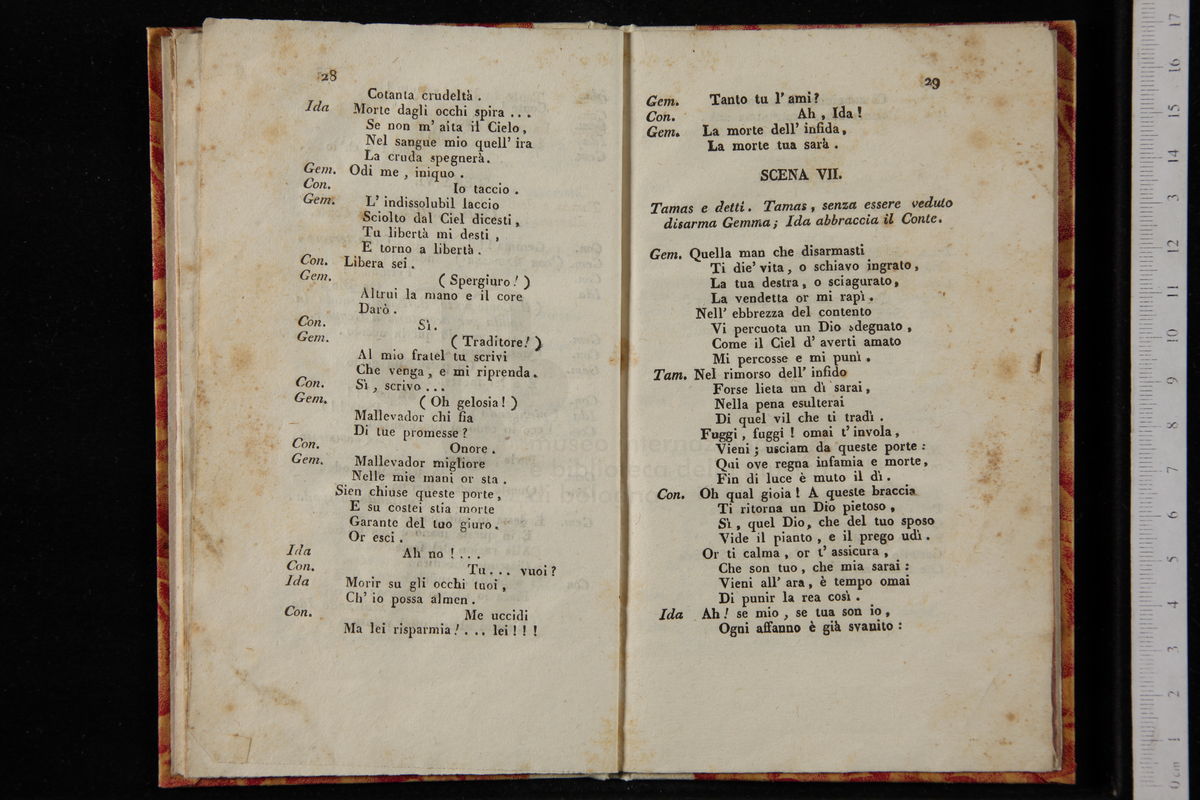 28
Cotanta crudeltà .
Ida Morte dagli occhi spira . . .
Se non m' aita il Cielo ,
Nel sangue mio quell' ira
La cruda spegnerà .
Gem. Odi me , iniquo .
Con. Io taccio .
Gem. L' indissolubil laccio
Sciolto dal Ciel dicesti ,
Tu libertà mi desti ,
E torno a libertà .
Con. Libera sei .
Gem. ( Spergiuro ! )
Altrui la mano e il core
Darò .
Con. Sì .
Gem. ( Traditore ! )
Al mio fratel tu scrivi
Che venga , e mi riprenda .
Con. Sì , scrivo . . .
Gem. ( Oh gelosia ! )
Mallevador chi fia
Di tue promesse ?
Con. Onore .
Gem. Mallevador migliore
Nelle mie mani or sta .
Sien chiuse queste porte ,
E su costei stia morte
Garante del tuo giuro .
Or esci .
Ida Ah no ! . . .
Con. Tu . . . vuoi ?
Ida Morir su gli occhi tuoi ,
Ch' io possa almen .
Con. Me uccidi
Ma lei risparmia ! . . . lei ! ! !
29
Gem. Tanto tu l' ami ?
Con. Ah , Ida !
Gem. La morte dell' infida ,
La morte tua sarà .
SCENA VII.
Tamas e detti . Tamas , senza essere veduto
disarma Gemma ; Ida abbraccia il Conte .
Gem. Quella man che disarmasti
Ti die' vita , o schiavo ingrato ,
La tua destra , o sciagurato ,
La vendetta or mi rapì .
Nell' ebbrezza del contento
Vi percuota un Dio sdegnato ,
Come il Ciel d' averti amato
Mi percosse e mi punì .
Tam. Nel rimorso dell' infido
Forse lieta un dì sarai ,
Nella pena esulterai
Di quel vil che ti tradì .
Fuggi , fuggi ! omai t' invola ,
Vieni ; usciam da queste porte :
Qui ove regna infamia e morte ,
Fin di luce è muto il dì .
Con. Oh qual gioia ! A queste braccia
Ti ritorna un Dio pietoso ,
Sì , quel Dio , che del tuo sposo
Vide il pianto , e il prego udì .
Or ti calma , or t' assicura ,
Che son tuo , che mia sarai :
Vieni all' ara , è tempo omai
Di punir la rea così .
Ida Ah ! se mio , se tua son io ,
Ogni affanno è già svanito :
0 cm 1 2 3 4 5 6 7 8 9 10 11 12 13 14 15 16 17